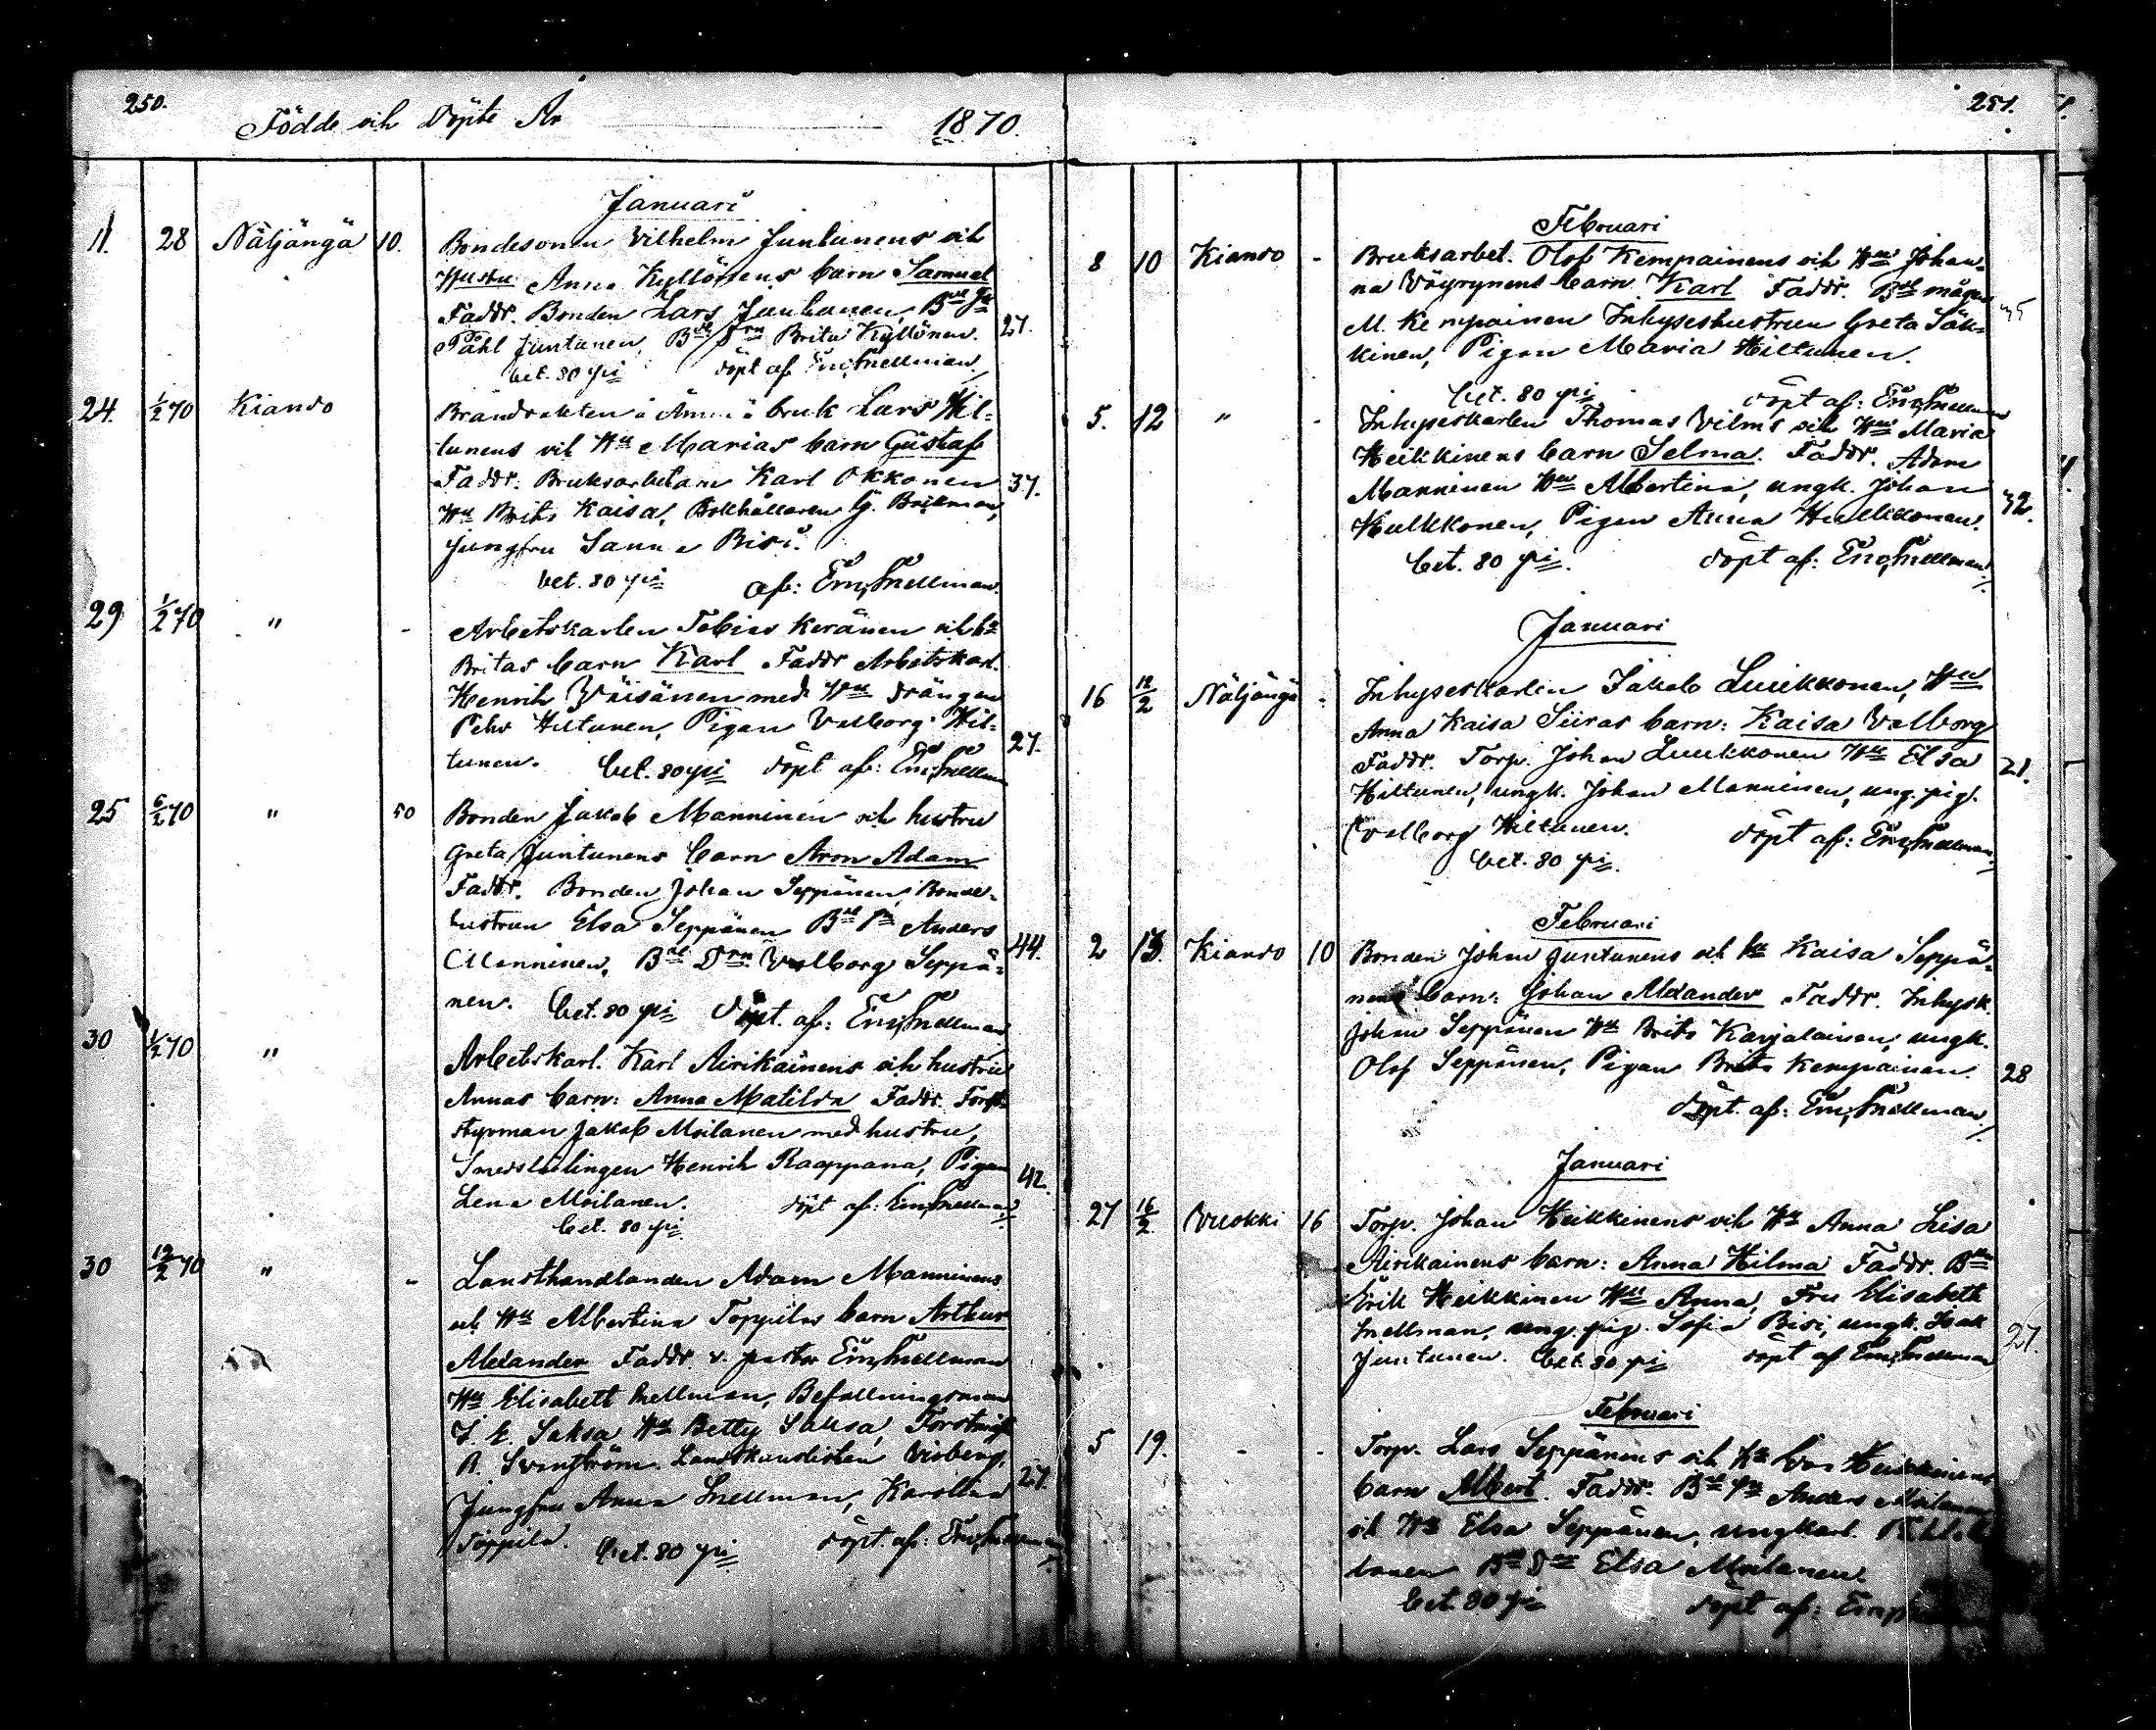 250.
Födde och Döpte År 1870.
Januari
11. 28 Näljängä 10. Bondesonen Vilhelm Juntunens och
Hustru Anna Kyllönens barn Samuel
Faddr. Bonden Lars Juntunen, Bde
Påhl Juntunen, Bde Drn Brita Kyllönen. 27.
bet. 80 pi döpt af Em. Snellman
24. 1/2 70 Kianvo Brändvakten å Ämmä bruk Lars Hil-
tunens och Hu Marias barn Gustaf
Faddr. Bruksarbetaren Karl Okkonen 37.
Hu Brita Kaisa, Bokhållaren G. Brikman,
Jungfru Sanna Bisi.
bet. 80 pi af: Em. Snellman.
29 1/2 70 " - Arbetskarlen Tobias Keränen och hu
Britas barn Karl Faddr Arbetskarl.
Henrik Väisänen med Hu drängen
Pehr Hiltunen, Pigan Valborg Hil- 27.
tunen. bet. 80 pi döpt af: Em. Snellman
25 6/2 70 " 50 Bonden Jakob Manninen och hustru
Greta Juntunens barn Aron Adam
Faddr. Bonden Johan Seppänen, Bonde-
hustrun Elsa Seppänen Bde Anders
Manninen, Bde Drn Valborg Seppä- 44.
nen. bet. 80 pi Döpt. af: Em. Snellman
30 1/2 70 " Arbetskarl. Karl Airikainens och hustru
Annas barn: Anna Matilda Faddr. Forst-
styrman Jakob Moilanen med hustru,
Smedslärlingen Henrik Raappana, Pigan 42.
Lena Moilanen. döpt af: Em. Snellman
bet. 80 pi
30 12/2 70 " - Lansthandlanden Adam Manninens
och Hu Albertina Toppilas barn Arthur
Alexander Faddr. v. pastor Em. Snellman
Hu Elisabett Snellman, Befallningsman
J. E. Saksa Hu Betty Saksa,
Landtkanslisten
Jungfru Anna Snellman, Karolina 27.
Toppila. bet. 80 pi döpt. af: Em. Snellman
251.
Februari
8 10 Kianvo - Bruksarbet. Olof Kempainens och Hu Johan-
na Väyrynens barn Karl Faddr. Bde mågen
M. Kempainen Inhyseshustrun Greta Säk- 35
kinen, Pigan Maria Hiltunen.
bet. 80 pi döpt af: Em. Snellman
5. 12 " - Inhyseskarlen Thomas Vilmi och Hu Maria
Heikkinens barn Selma. Faddr. Adam
Manninen Hu Albertina, ungk. Johan 32.
Hulkkonen, Pigan Anna Hulkkonen.
bet. 80 pi. döpt af: Em. Snellman
Januari
16 12/2 Näljängä - Inhyseskarlen Jakob Luukkonen, Hu
Anna Kaisa Siiras barn: Kaisa Valborg
Faddr. Torp. Johan Luukkonen Hu Elsa 21.
Hiltunen, ungk. Johan Manninen, ung. pig.
Valborg Hiltunen. döpt af: Em. Snellman
bet. 80 pi.
Februari
2 13. Kianvo 10 Bonden Johan Juntunens och hu Kaisa Seppä-
nens barn: Johan Alexander Faddr. Inhysk.
Johan Seppänen Hu Brita Karjalainen, ungk.
Olof Seppänen, Pigan Brita Kempainen. 28
döpt. af: Em. Snellman
Januari
27 16/2 Vuokki 16 Torp. Johan Heikkinens och Hu Anna Lisa
Airikainens barn: Anna Hilma Faddr.
Erik Heikkinen Hu Anna, Fru Elisabeth
Snellman, ung. pig. Sofia Bisi, ungk. Isak 27.
Juntunen. bet. 80 pi döpt af Em. Snellman
Februari
5 19. - - Torp. Lars Seppänens och Hu Eva Heikkinens
barn Albert. Faddr. Anders Moilanen
och Hu Elsa Seppänen, ungkarl.
Elsa Moilanen.
bet. 80 pi döpt af: Em.